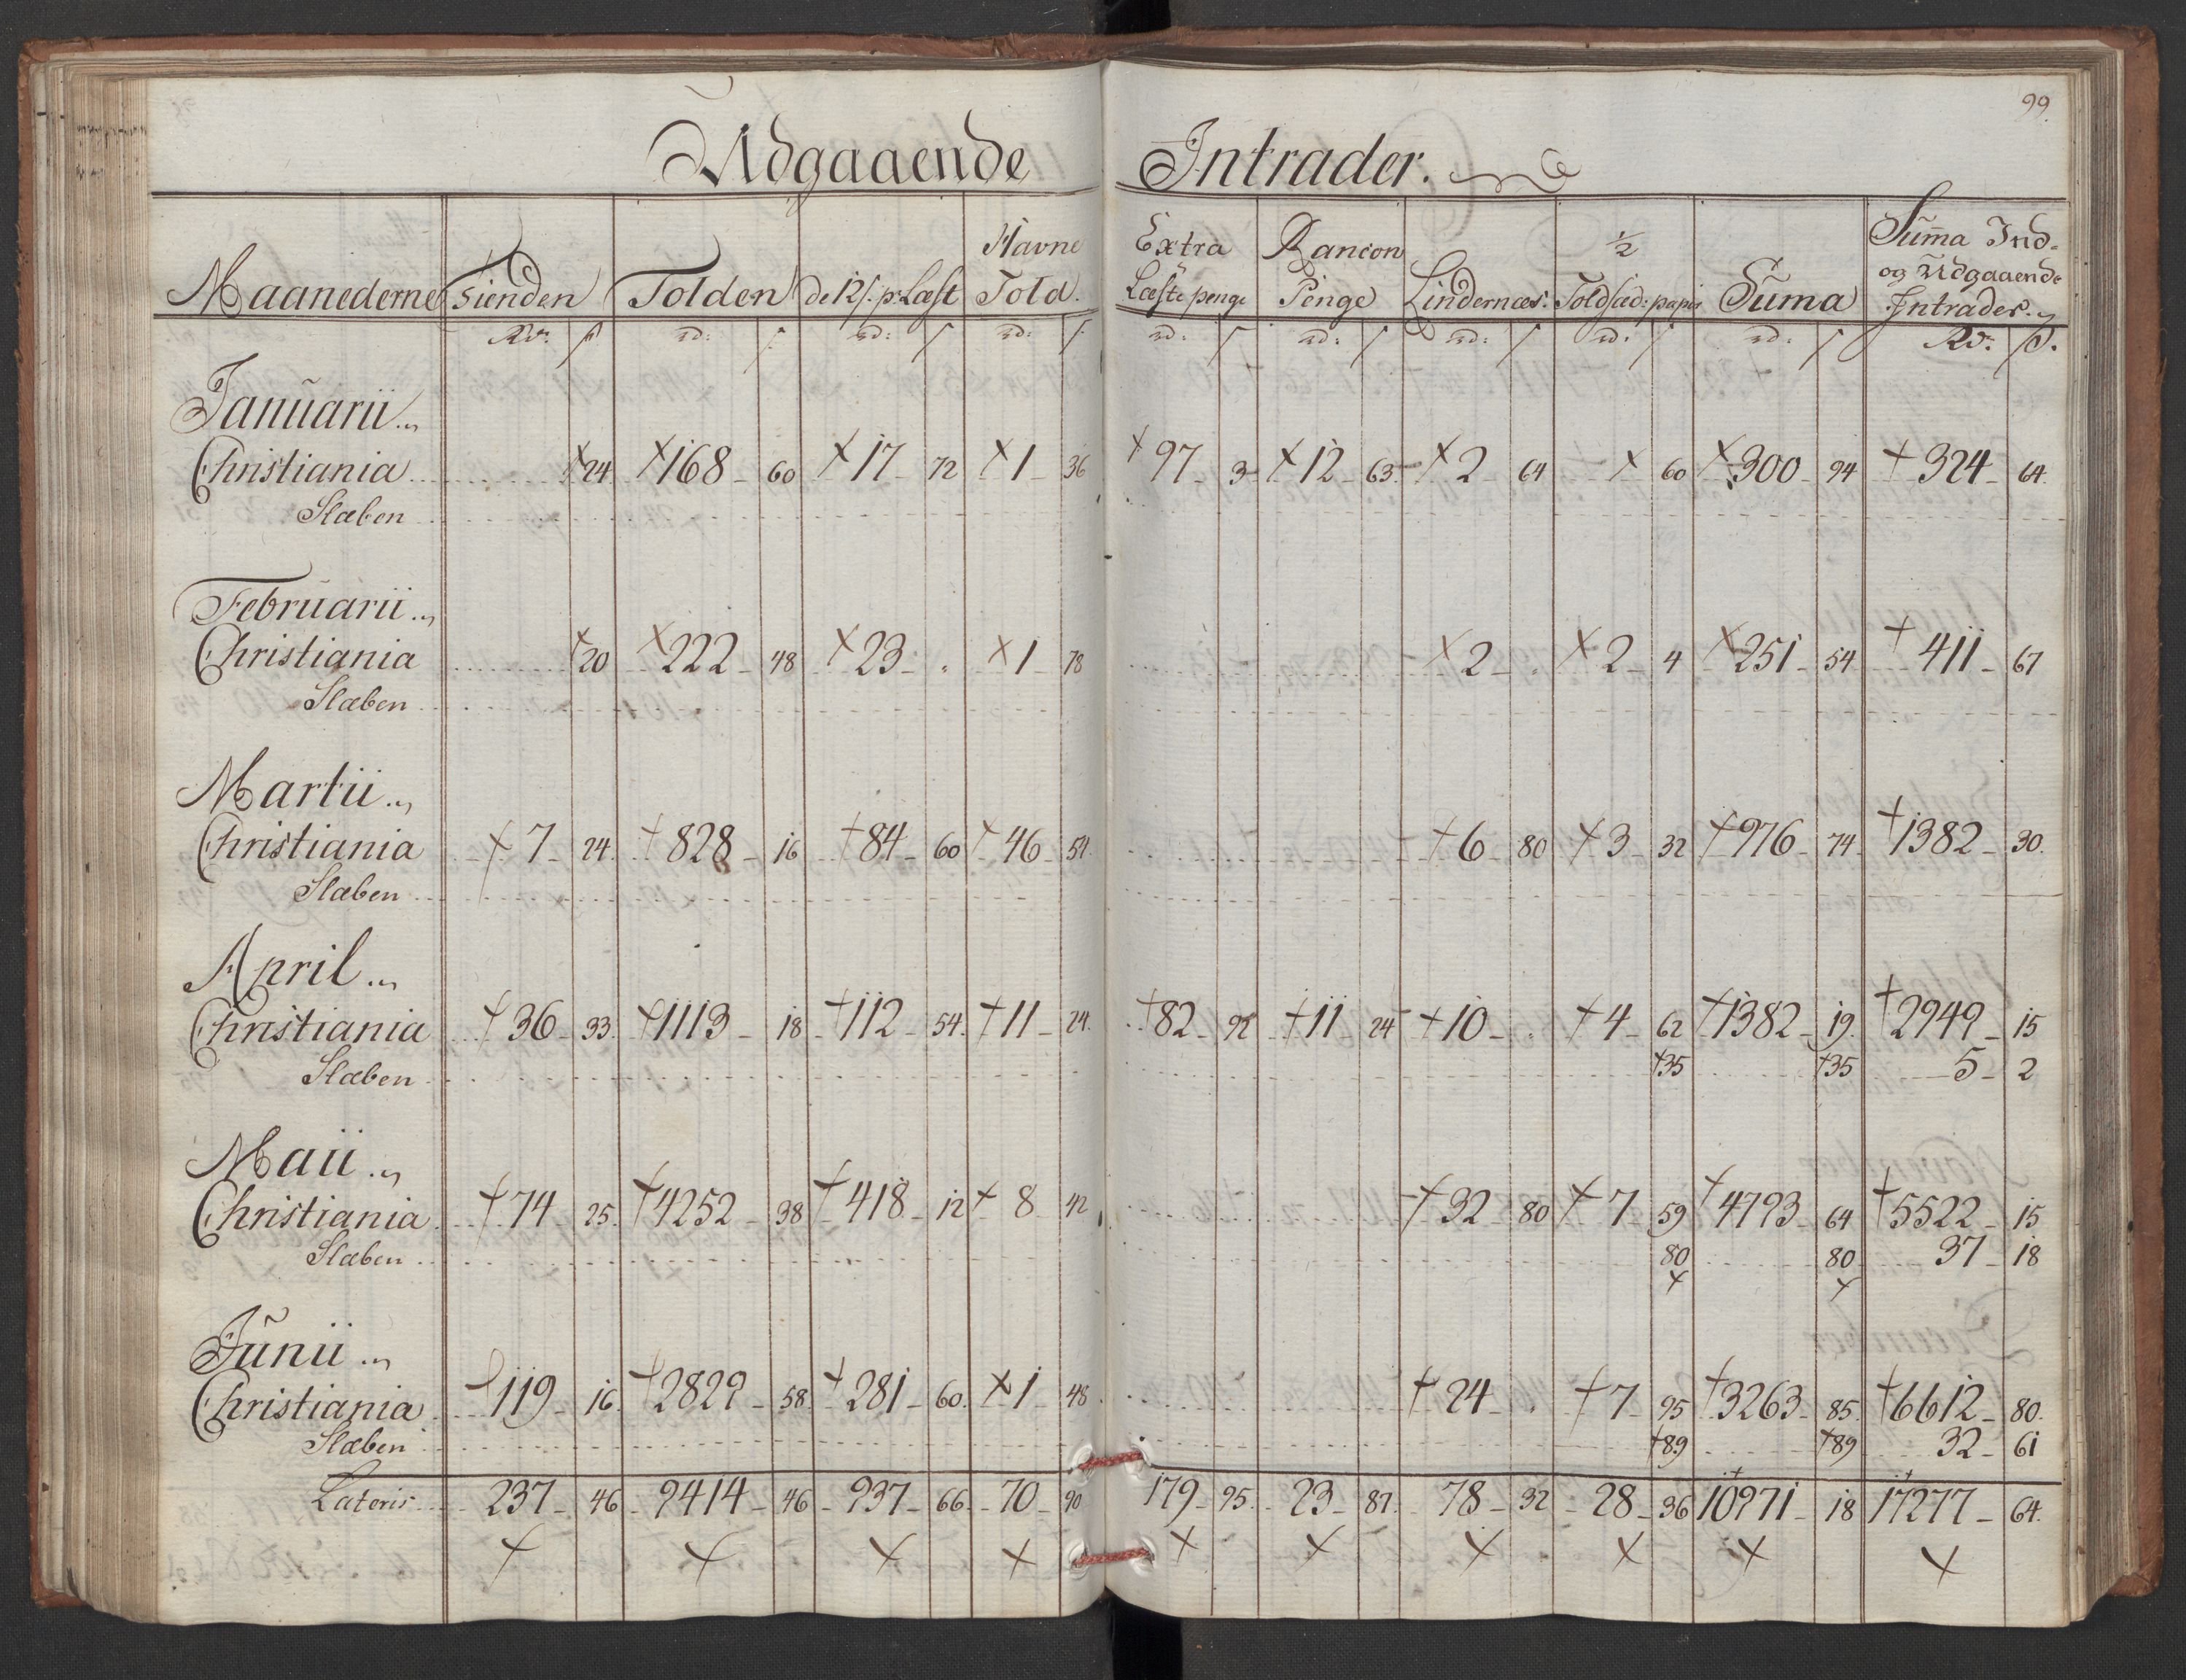 99.
Udgaaende Intrader.
Maanederne | Tienden | Tolden | de 12 s. pr Læst | Havne Told. | Extra Læste penge | Rancon Penge | Lindernæs. | 1/2 Toldsæd: papir | Suma | Suma Ind- og Udgaaende Intrader.
Rd: s | rd: s | rd: s | rd: s | rd: s | rd: s | rd: s | rd: s | rd: s | Rd: s.
Januarii
Christiania | 24 | 168 60 | 17 72 | 1 36 | 97 3 | 12 63 | 2 64 | 60 | 300 94 | 324 64.
Slæben
Februarii
Christiania | 20 | 222 48 | 23 . | 1 78 | | | 2 . | 2 4 | 251 54 | 411 67
Slæben
Martii
Christiania | 7 24 | 828 16 | 84 60 | 46 54 | | | 6 80 | 3 32 | 976 74 | 1382 30.
Slæben
April
Christiania | 36 33 | 1113 18 | 112 54 | 11 24 | 82 92 | 11 24 | 10 . | 4 62 | 1382 19 | 2949 15
Slæben | 35 | 35 | 5 2
Maii
Christiania | 74 25 | 4252 38 | 418 12 | 8 42 | | | 32 80 | 7 59 | 4793 64 | 5522 15
Slæben | 80 | 80 | 37 18
Junii
Christiania | 119 16 | 2829 58 | 281 60 | 1 48 | | | 24 . | 7 95 | 3263 85 | 6612 80.
Slæben | 89 | 89 | 32 61
Lateris | 237 46 | 9414 46 | 937 66 | 70 90 | 179 95 | 23 87 | 78 32 | 28 36 | 10971 18 | 17277 64.